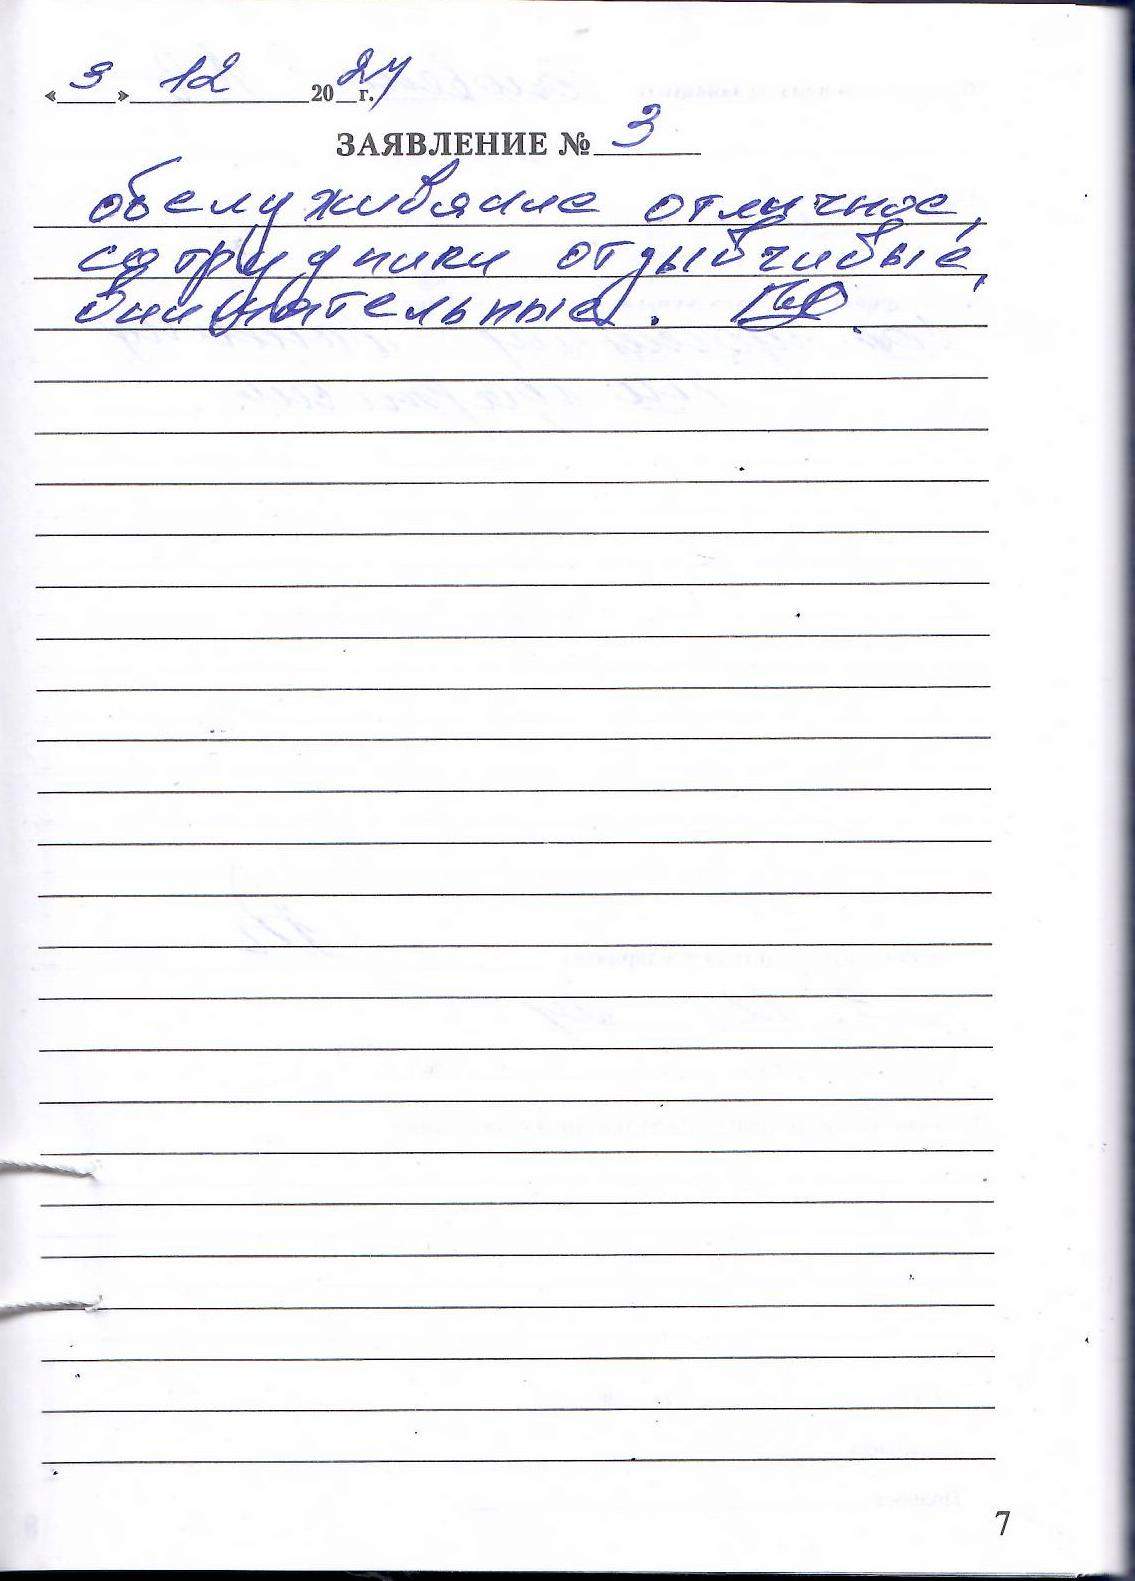 «3» 12 2024 г.
ЗАЯВЛЕНИЕ № 3
обслуживание отличное,
сотрудники отзывчивые,
внимательные.
7